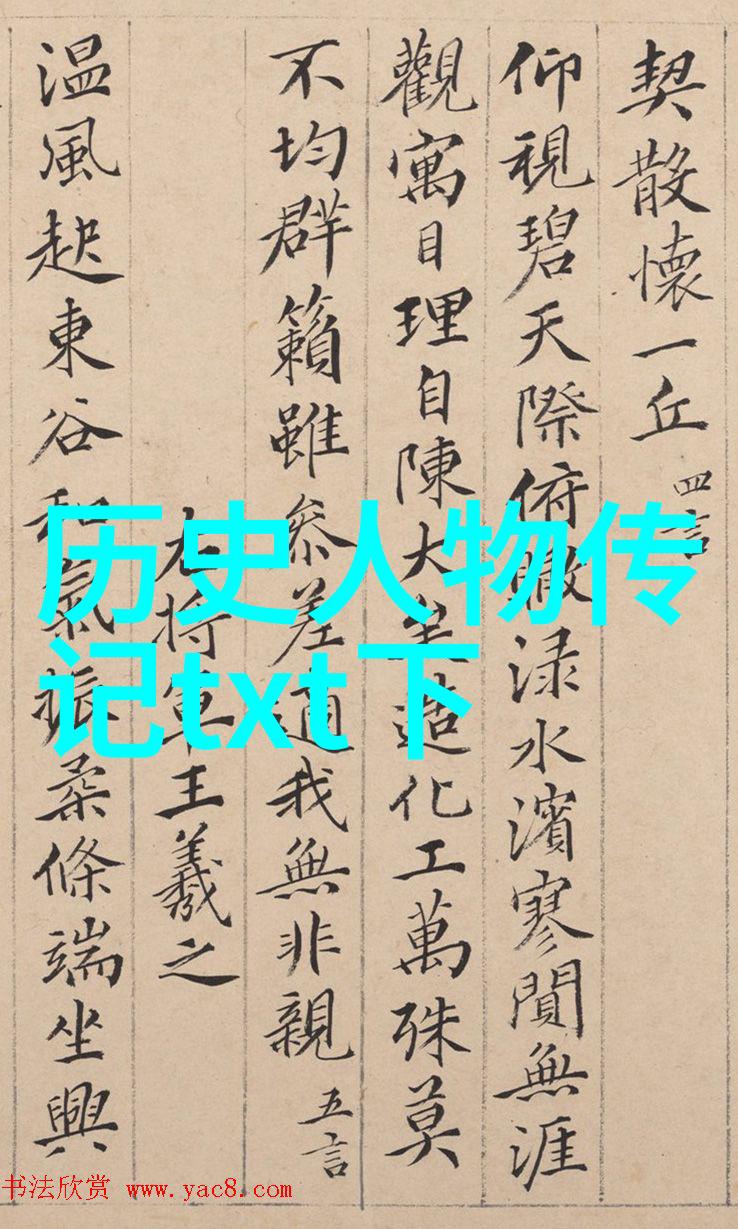 契散懷一丘 四言
仰視碧天際俯瞰渌水濱寥閴無涯
觀寓目理自陳大矣造化工萬殊莫
不均群籟雖參差適我無非親 五言
右將軍王羲之
温風起東谷和氣振柔條端坐興
历史人物传
记txt下
书法欣赏 www.yac8.com